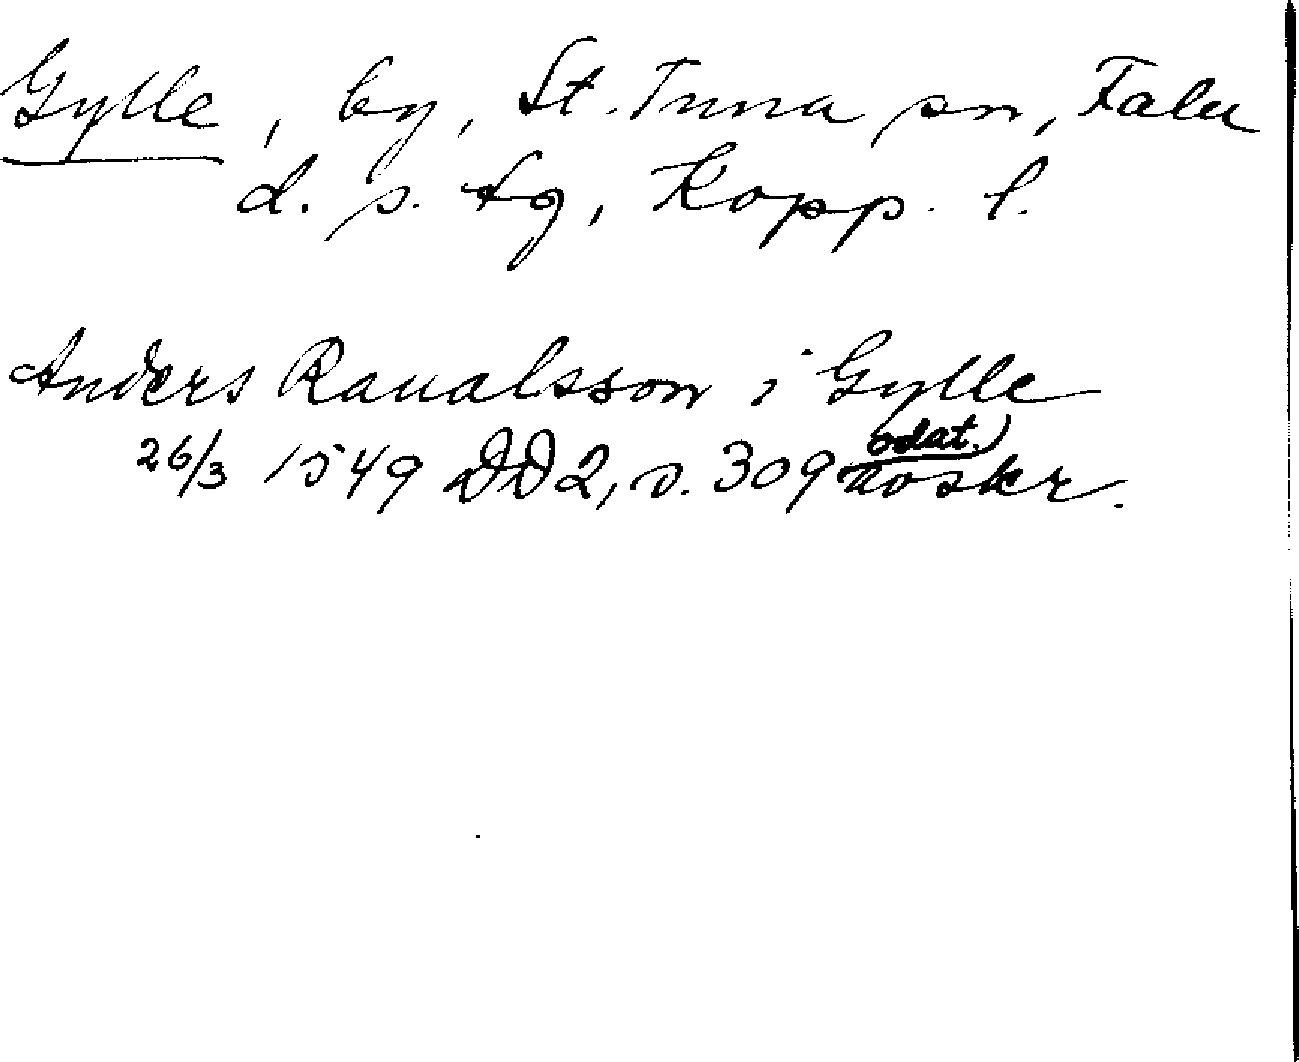 Gylle, by, St. Tuna sn, Falu
d. s. tg, Kopp. l.
Anders Raualsson i Gylle
odat.)
26/3 1549 DD2, s. 309 avskr.